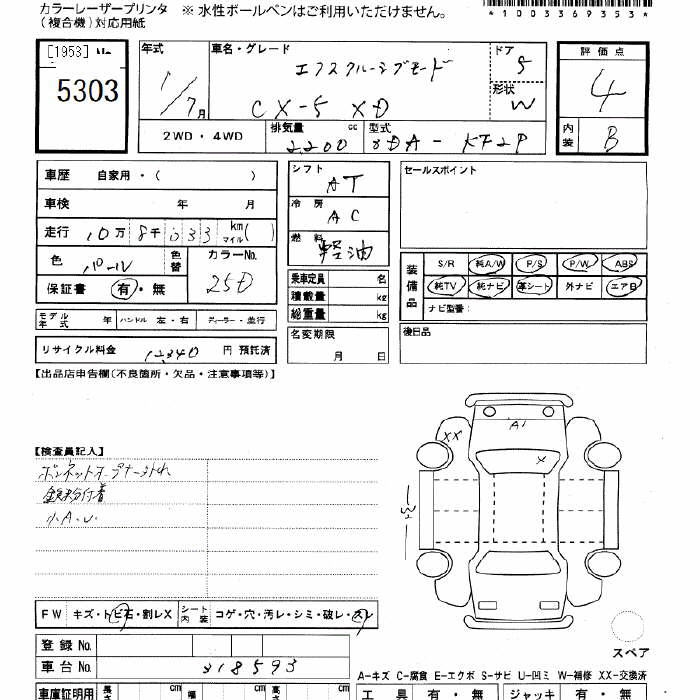 カラーレーザープリンタ ※ 水性ボールペンはご利用いただけません。
(複合機)対応用紙
*1003369353*
[1953]
5303
年式 1/7月
車名・グレード エクスクルーシブモード
CX-5 XD
ドア 5
形状 W
評価点 4
内装 B
2WD・4WD
排気量 2,200 cc
型式 3DA-KF2P
車歴 自家用・( )
車検 年 月
走行 10万8千033 km マイル( )
色 パール 色替 カラーNo. 25D
保証書 有・無
モデル年式 年 ハンドル 左・右 ディーラー・並行
リサイクル料金 12,340 円 預託済
シフト AT
冷房 AC
燃料 軽油
乗車定員 名
積載量 kg
総重量 kg
名変期限
月 日
セールスポイント
装備品 S/R 純A/W P/S P/W ABS
純TV 純ナビ 革シート 外ナビ エアB
ナビ型番:
後日品
【出品店申告欄(不良箇所・欠品・注意事項等)】
【検査員記入】
ボンネットオープナー外れ
鉄粉付着
小A.U.
XX
A1
X
W2
スペア
FW キズ・トビ石・割レX シート内装 コゲ・穴・汚レ・シミ・破レ・スレ
登録No.
車台No. 318593
A-キズ C-腐食 E-エクボ S-サビ U-凹ミ W-補修 XX-交換済
車庫証明用 長さ cm 幅 cm 高さ cm
工具 有・無 ジャッキ 有・無